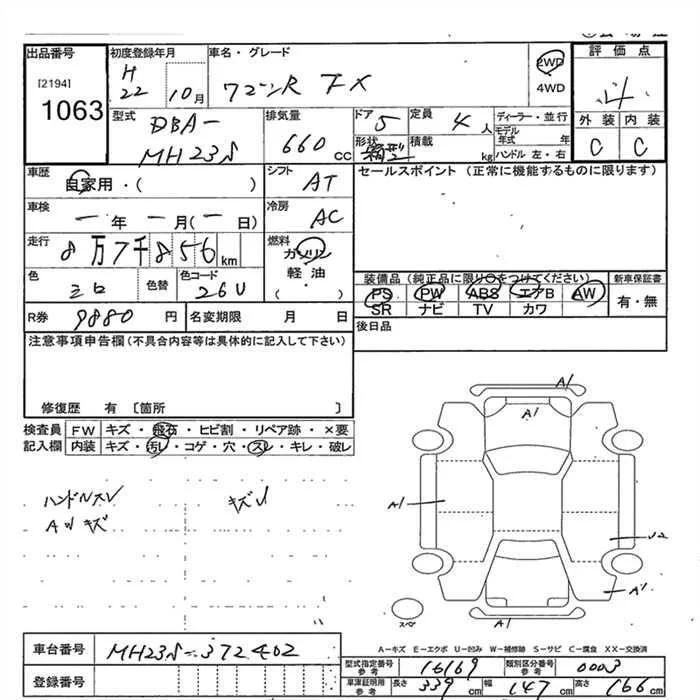 出品番号
[2194]
1063
初度登録年月
H
22 10月
車名・グレード
ワゴンR FX
2WD
4WD
評価点
4
外装 内装
C C
型式
DBA-
MH23S
排気量
660 cc
ドア 5
定員 4人
ディーラー・並行
モデル年式 年
形状 箱型
積載 kg
ハンドル 左・右
車歴
自家用・( )
シフト AT
セールスポイント (正常に機能するものに限ります)
車検
一年 一月(一日)
冷房 AC
走行
8万7千856km
燃料
ガソリン
軽・油
( ・ )
色
シロ
色替
色コード
26U
装備品(純正品に限り○をつけてください)
PS PW ABS エアB AW
SR ナビ TV カワ
新車保証書
有・無
R券 9880円
名変期限 月 日
後日品
注意事項申告欄(不具合内容等は具体的に記入して下さい)
修復歴 有 [箇所 ]
検査員記入欄
FW キズ・飛石・ヒビ割・リペア跡・×要
内装 キズ・汚レ・コゲ・穴・スレ・キレ・破レ
ハンドルスレ
キズ
A1
A1
A1
A1
A1
スペ
A-キズ E-エクボ U-凹み W-補修跡 S-サビ C-腐食 XX-交換済
車台番号 MH23S-372402
登録番号
型式指定番号 参考 16169
類別区分番号 参考 0003
車庫証明用 参考 長さ 339cm 幅 147cm 高さ 166cm